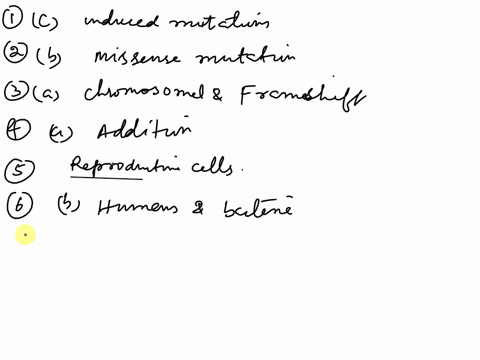 ① (c) induced mutations
② (b) missense mutation
③ (a) chromosomel & Frameshift
④ (a) Addition
⑤ Reproductive cells.
⑥ (b) Humans & bacteria